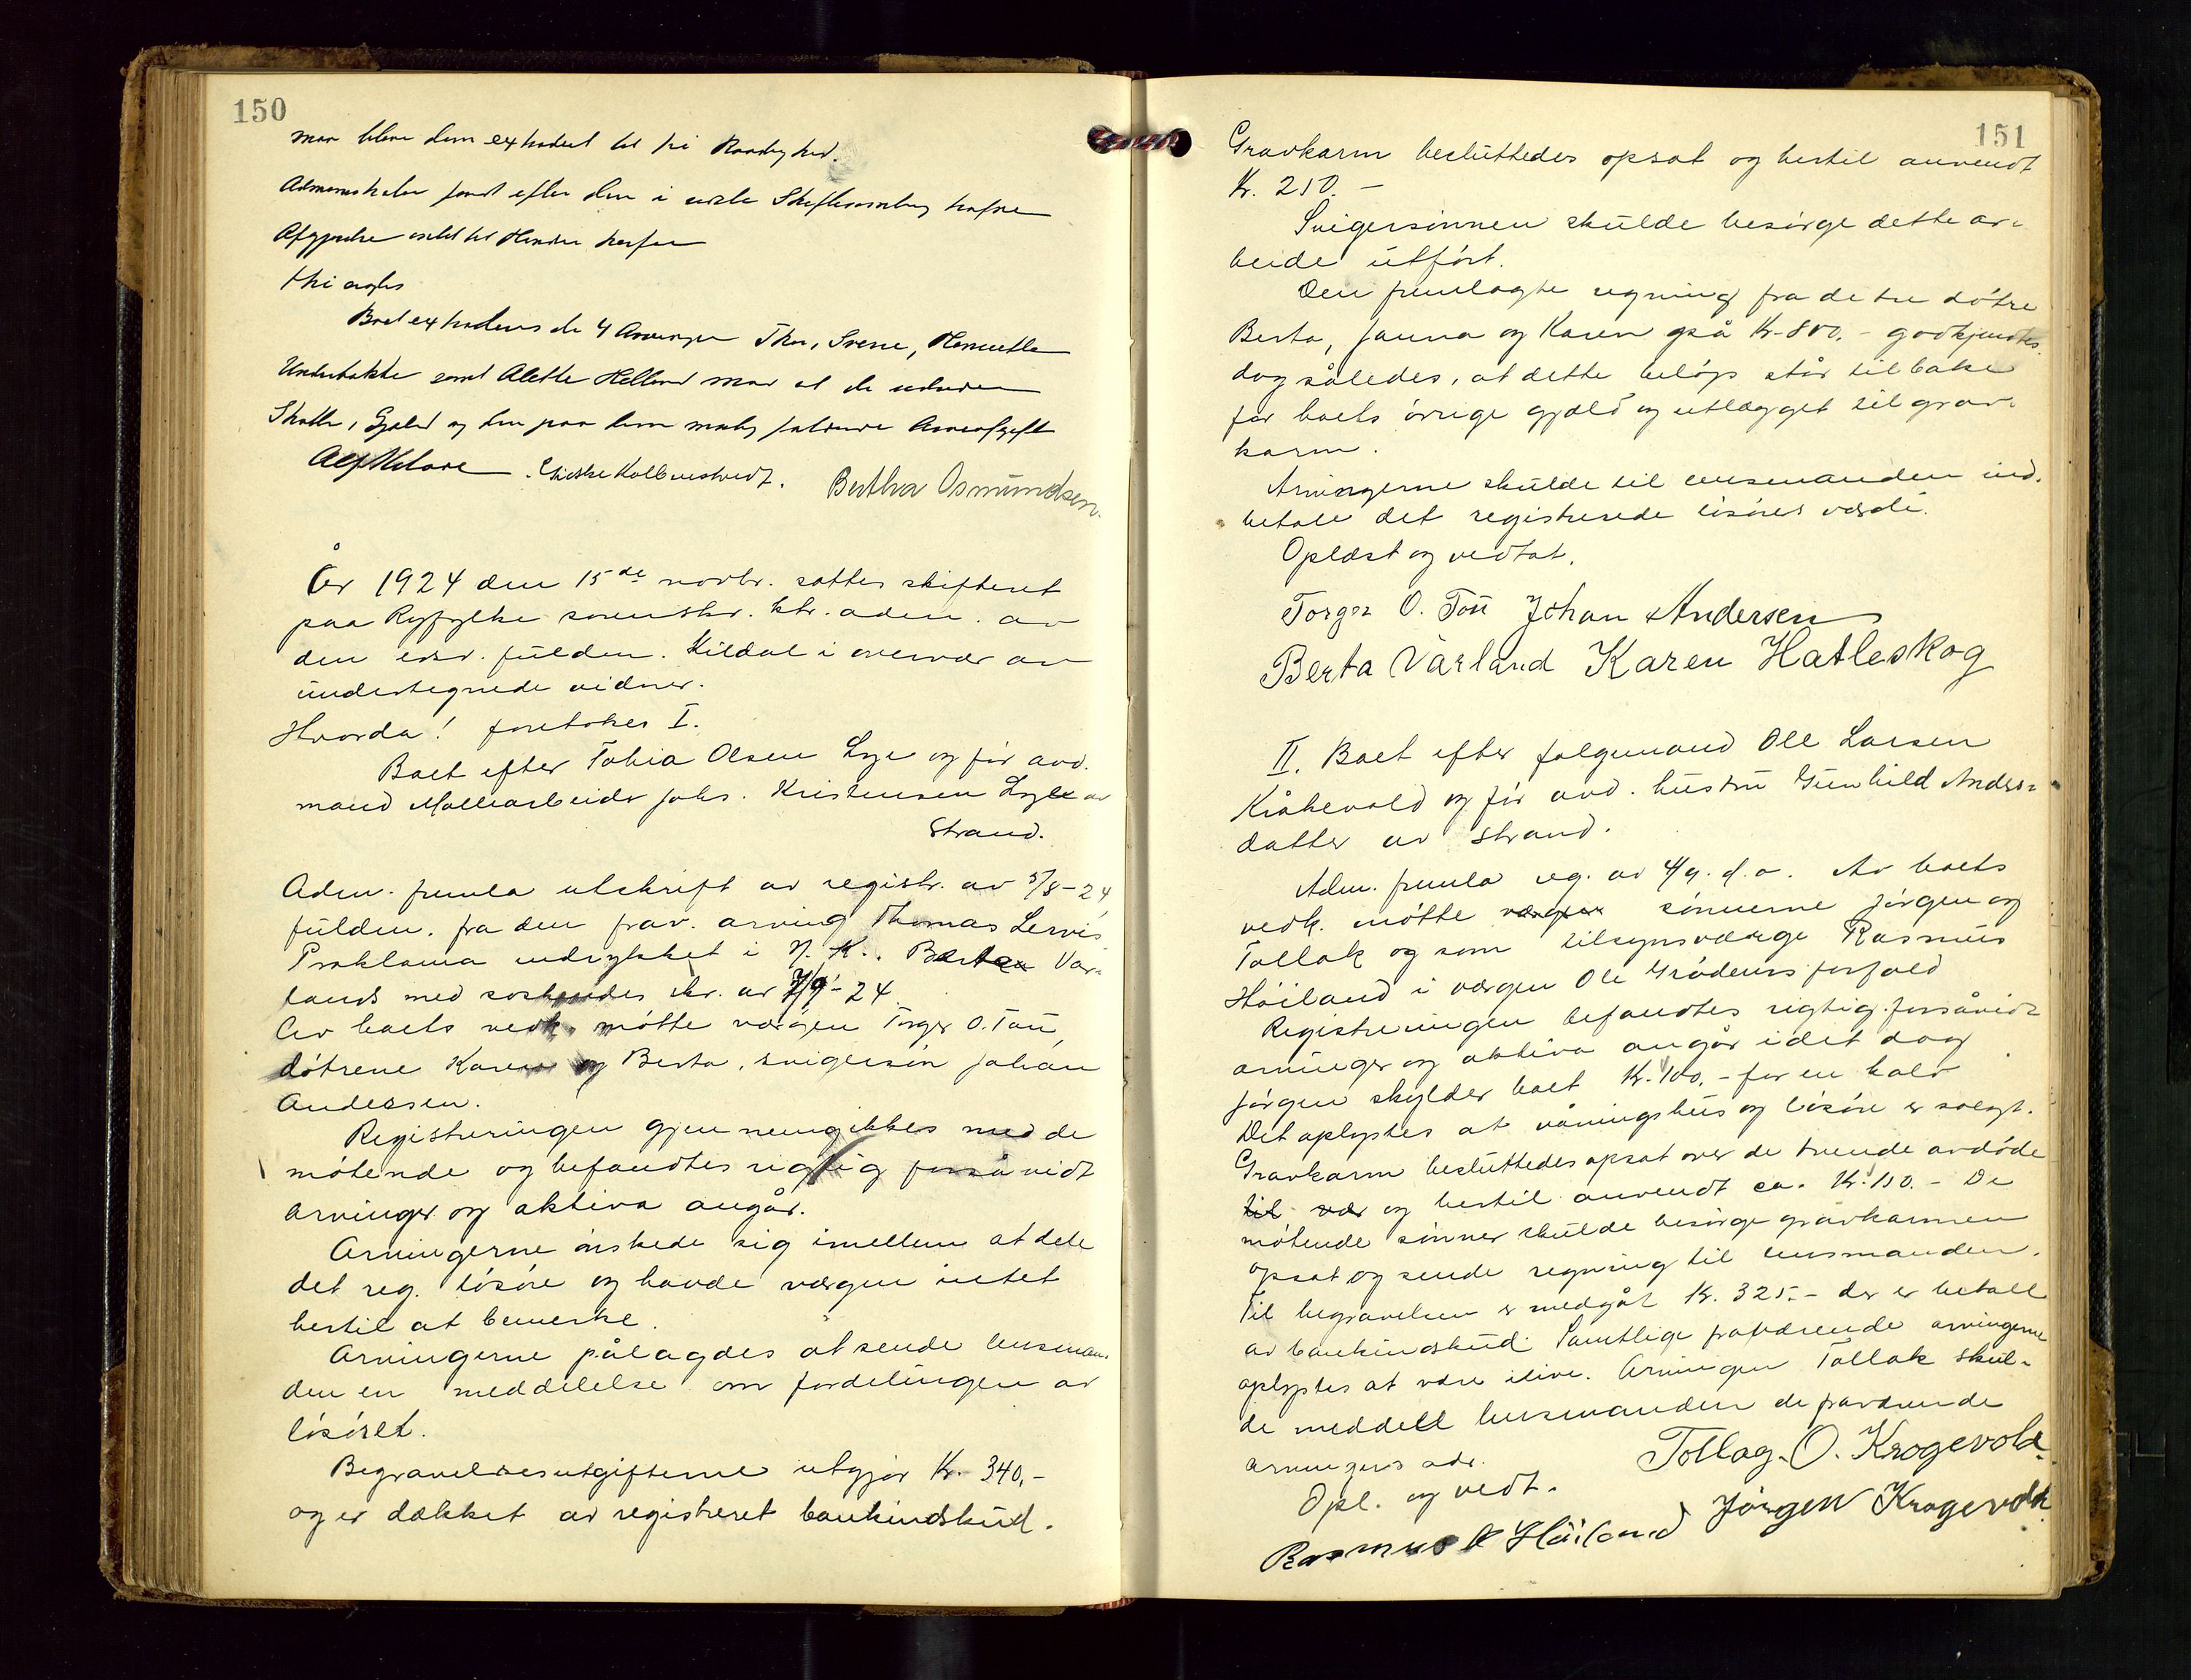 150
maa blive dem extraderet til fri Raadighed.
Administrator fandt efter den i sidste Skiftesamling trufne
Afgjørelse intet til Hinder herfor
thi agtes
Boet extraderes de 4 Arvinger Thor, Sverre, Henriette
Underbakke samt Alette Helland mod at de udreder
Skatter, Gjæld og den paa dem mulig faldende Arveafgift
Bertha Osmundsen.
År 1924 den 15de novbr. sattes skifteret
paa Ryfylke sorenskr. ktr. adm. av
den edsv. fuldm. Kildal i overvær av
undertegnede vidner.
Hvorda! foretokes I.
Boet efter Tobia Olsen Lye og før avd.
mand Møllearbeider Johs. Kristensen Lye av
Strand.
Adm. fremla utskrift av registr. av 5/8-24
fuldm. fra den frav. arving Thomas Lervis
Proklama indrykket i N. K. Berta Var-
lands med søskendes skr. av 7/9-24
Av boets vedk. møtte værgen Torger O. Tou
døtrene Karen og Berta, svigersøn Johan
Andersen.
Registreringen gjennemgikkes med de
møtende og befandtes rigtig forsåvidt
arvinger og aktiva angår.
Arvingerne ønskede sig imellem at dele
det reg. løsøre og havde værgen intet
hertil at bemerke.
Arvingerne pålagdes at sende lensman-
den en meddelelse om fordelingen av
løsøret.
Begravelsesutgifterne utgjør Kr. 340,-
og er dækket av registreret bankindskud.
151
Gravkarm besluttedes opsat og hertil anvendt
Kr. 250.-
Svigersønnen skulde besørge dette ar-
beide utført.
Den fremlagte regning fra de tre døtre
Berta, Janna og Karen på Kr. 800,- godkjendtes.
dog således, at dette beløp står tilbake
for boets øvrige gjæld og utlægget til grav-
karm.
Arvingerne skulde til lensmanden ind-
betale det registrerede løsøres værdi.
Oplæst og vedtat.
Torger O. Tou Johan Andersen
Berta Varland Karen Hatleskog
II. Boet efter følgemand Ole Larsen
Kråkevold og før avd. hustru Gunhild Anders-
datter av Strand.
Adm. fremla reg. av 4/9. d.a. Av boets
vedk. møtte værgen sønnerne Jørgen og
Tollak og som tilsynsværge Rasmus
Høiland i værgen Ole Grødems forfald
Registreringen befandtes rigtig forsåvidt
arvinger og aktiva angår idet dog
Jørgen skylder boet Kr. 100.- for en kalv
Det oplystes at våningshus og løsøre er solgt.
Gravkarm besluttedes opsat over de tvende avdøde
til vær og hertil anvendt ca. Kr. 150.- De
møtende sønner skulde besørge gravkarmen
opsat og sende regning til lensmanden.
Til begravelsen er medgåt Kr. 325.- der er betalt
av bankindskud. Samtlige fraværende arvingerne
oplystes at være ilive. Arvingen Tollak skul-
de meddele lensmanden de fraværende
arvingers adr.
Opl. og vedt.
Tollag. O. Krogevold.
Jørgen Krogevold
Rasmus A Høiland